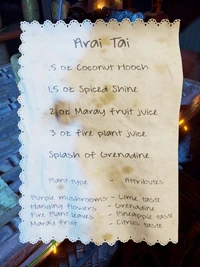 Arai Tai
.5 oz Coconut Hooch
1.5 oz Spiced Shine
2 oz Maray fruit juice
3 oz fire plant juice
Splash of Grenadine
Plant type - Attributes
Purple mushrooms - Lime taste
Hanging flowers - Grenadine
Fire Plant leaves - Pineapple taste
Marau fruit - Citrus taste